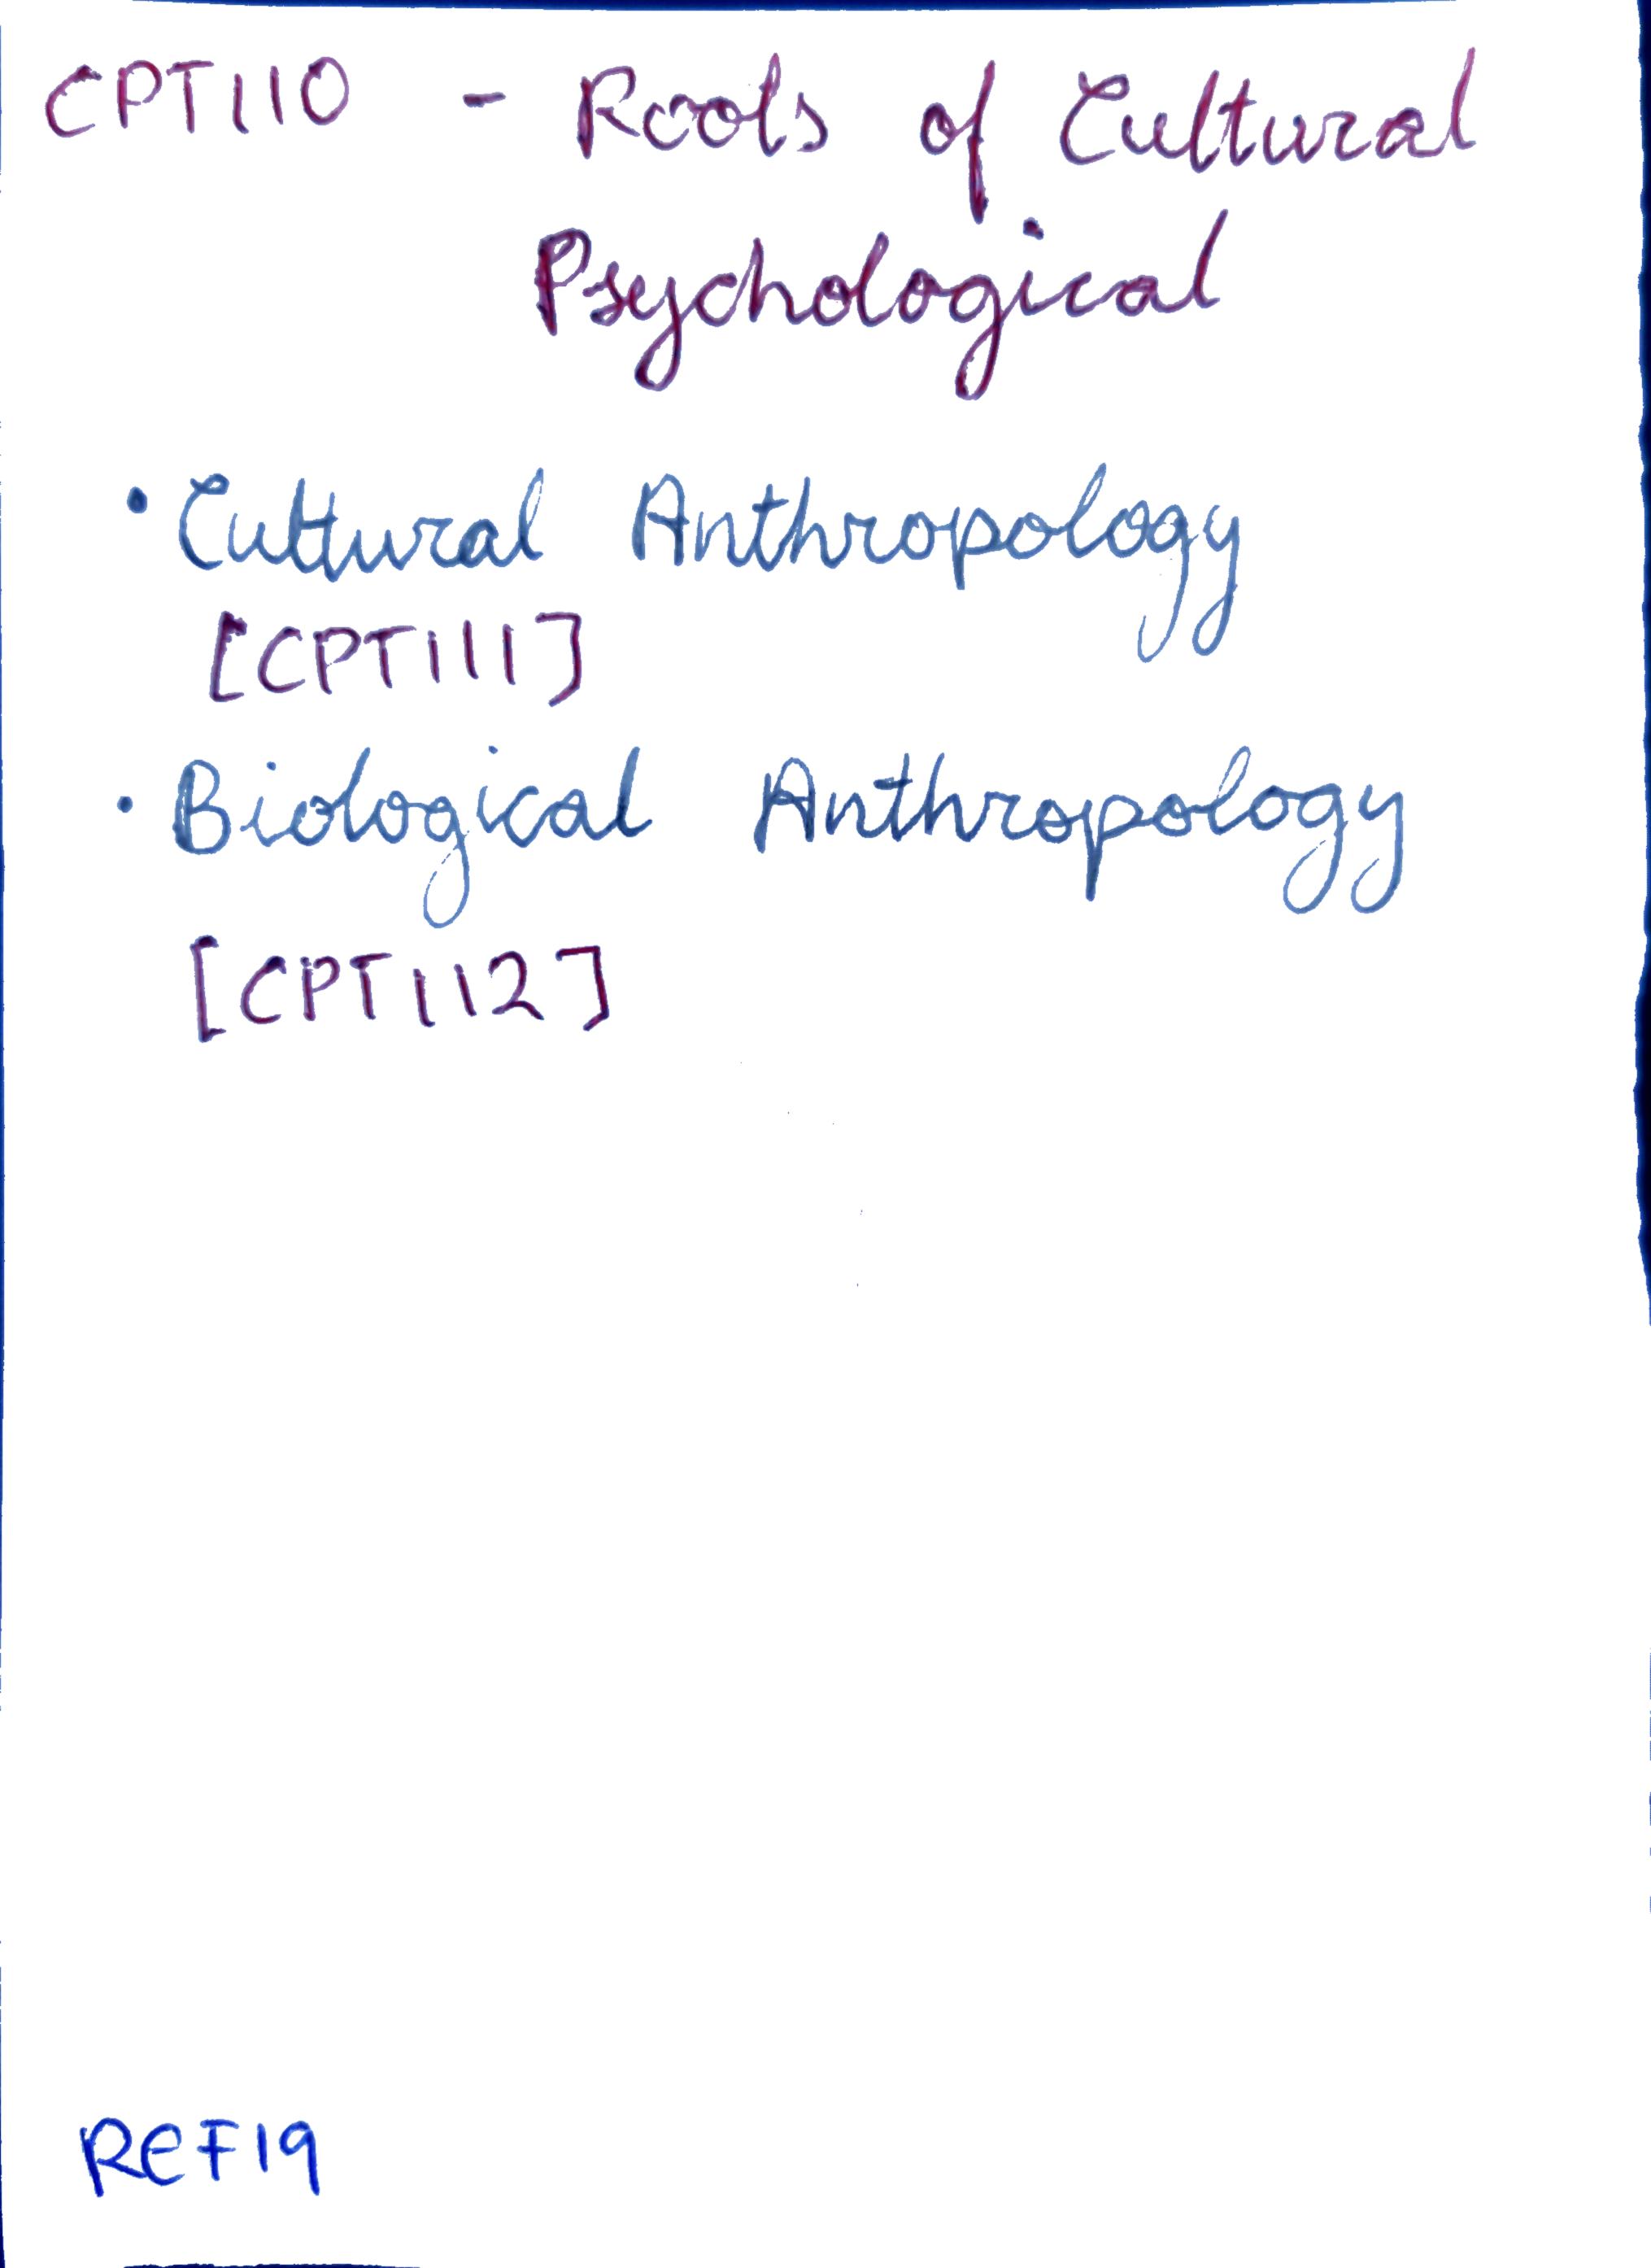 CPT110 - Roots of Cultural
Psychological
• Cultural Anthropology
[CPT111]
• Biological Anthropology
[CPT112]
REF19